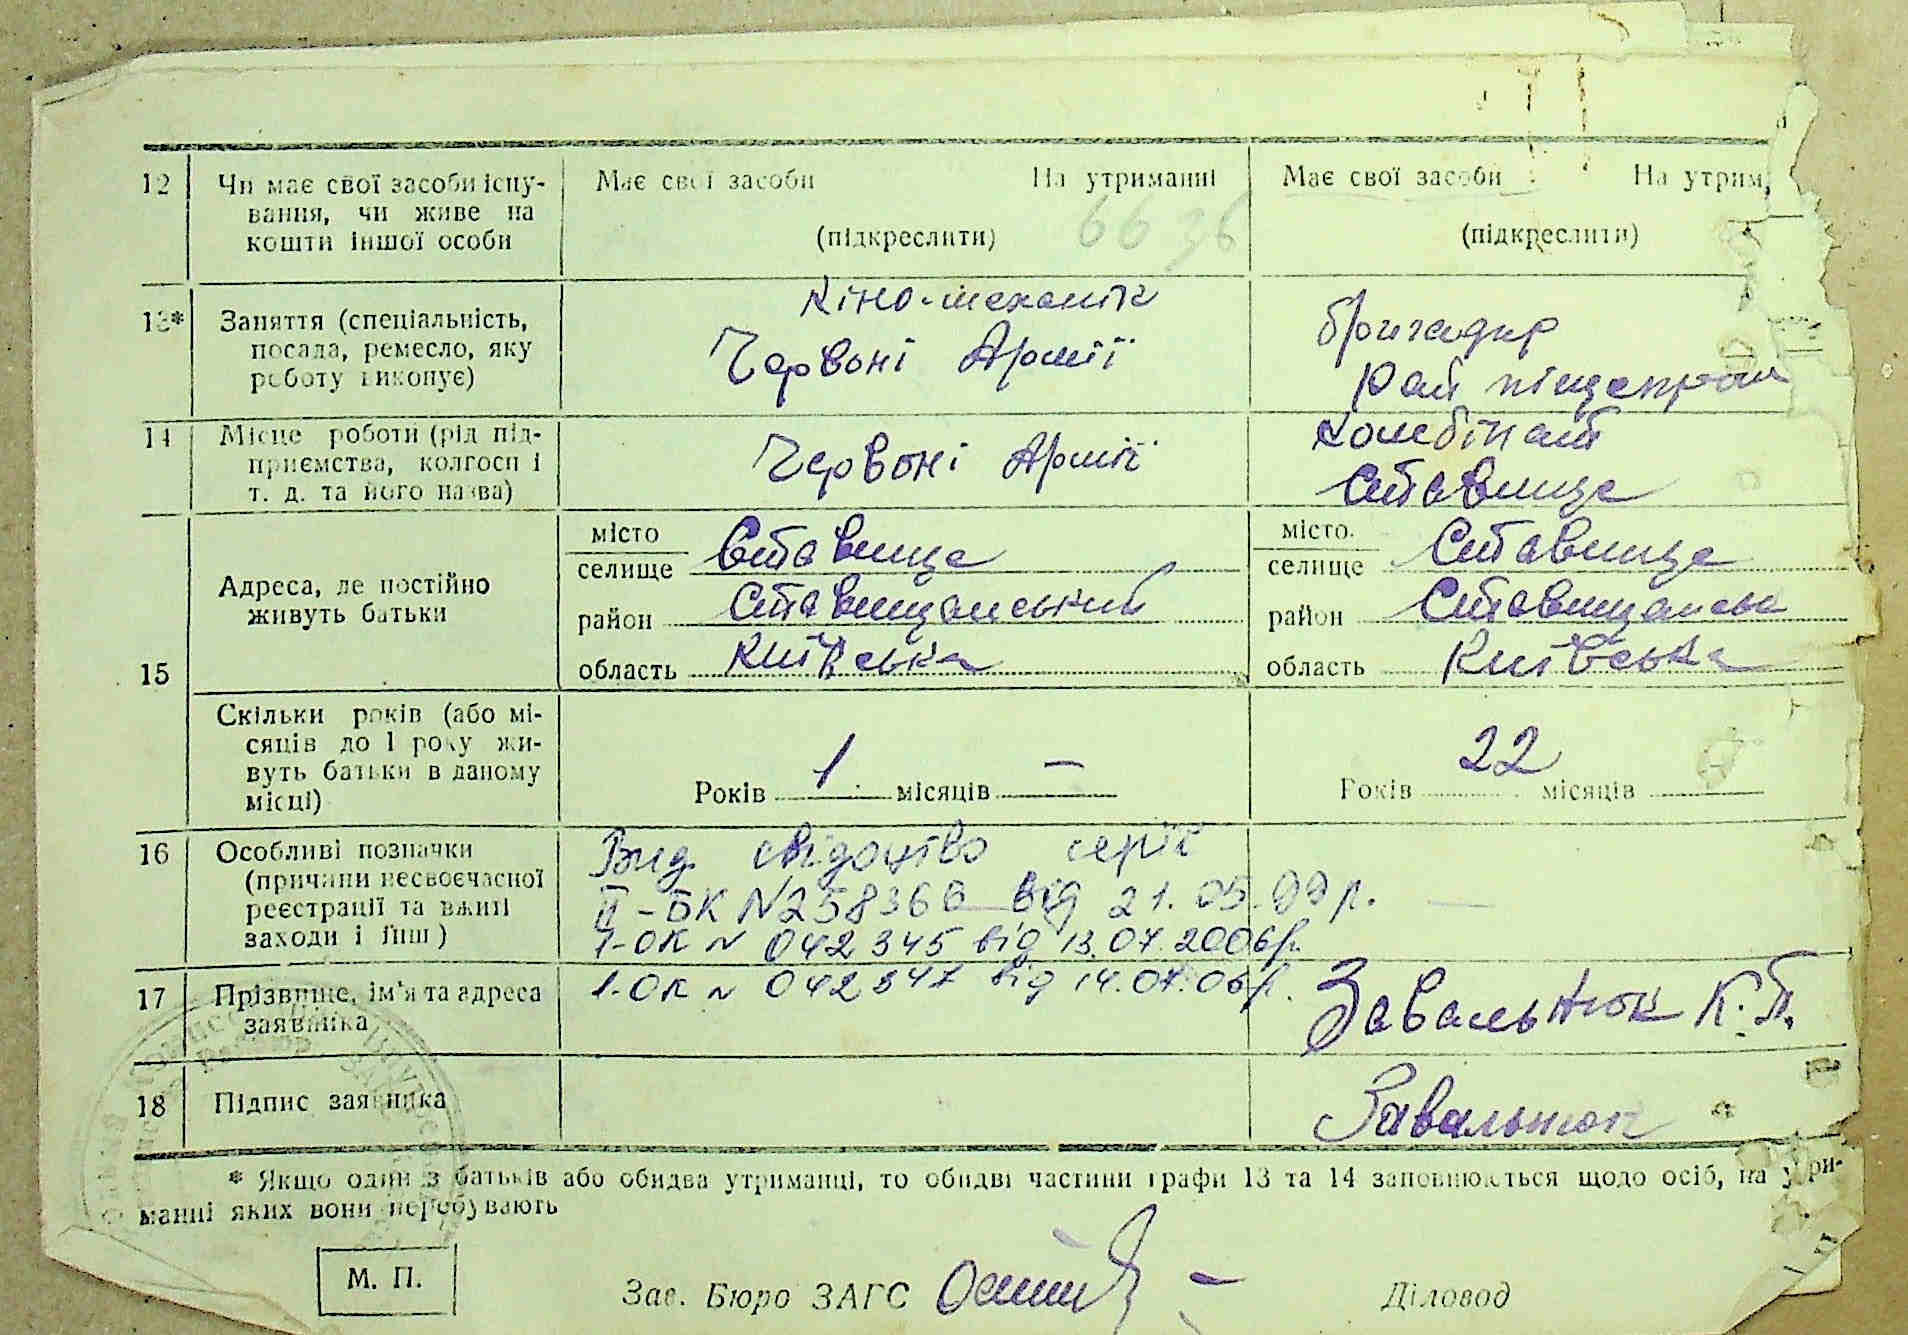 12 Чи має свої засоби існу-
вання, чи живе на
кошти іншої особи
Має свої засоби На утриманні
(підкреслити) 6636
Має свої засоби На утрим
(підкреслити)
13* Заняття (спеціальність,
посада, ремесло, яку
роботу виконує)
Кіно-механік
Червоні Армії
бригадир
Рай піщепром
14 Місце роботи (рід під-
приємства, колгосп і
т. д. та його назва)
Червоні Армії
комбінат
Ставище
15 Адреса, де постійно
живуть батьки
місто
селище Ставище
район Ставищанський
область Київська
місто
селище Ставище
район Ставищанськ
область Київська
Скільки років (або мі-
сяців до 1 року жи-
вуть батьки в даному
місці)
Років 1 місяців —
Років 22 місяців
16 Особливі позначки
(причини несвоєчасної
реєстрації та вжиті
заходи і інш)
Вид. свідоцтво серія
II-БК N 258366 від 21.05.99р.
1-ОК N 042345 від 13.07.2006р.
1-ОК N 042347 від 14.07.06р.
17 Прізвище, ім'я та адреса
заявника
Завальнюк К.П.
18 Підпис заявника
Завальнюк
* Якщо один з батьків або обидва утриманці, то обидві частини графи 13 та 14 заповнюються щодо осіб, на утри-
манні яких вони перебувають
М. П.
Зав. Бюро ЗАГС
Діловод